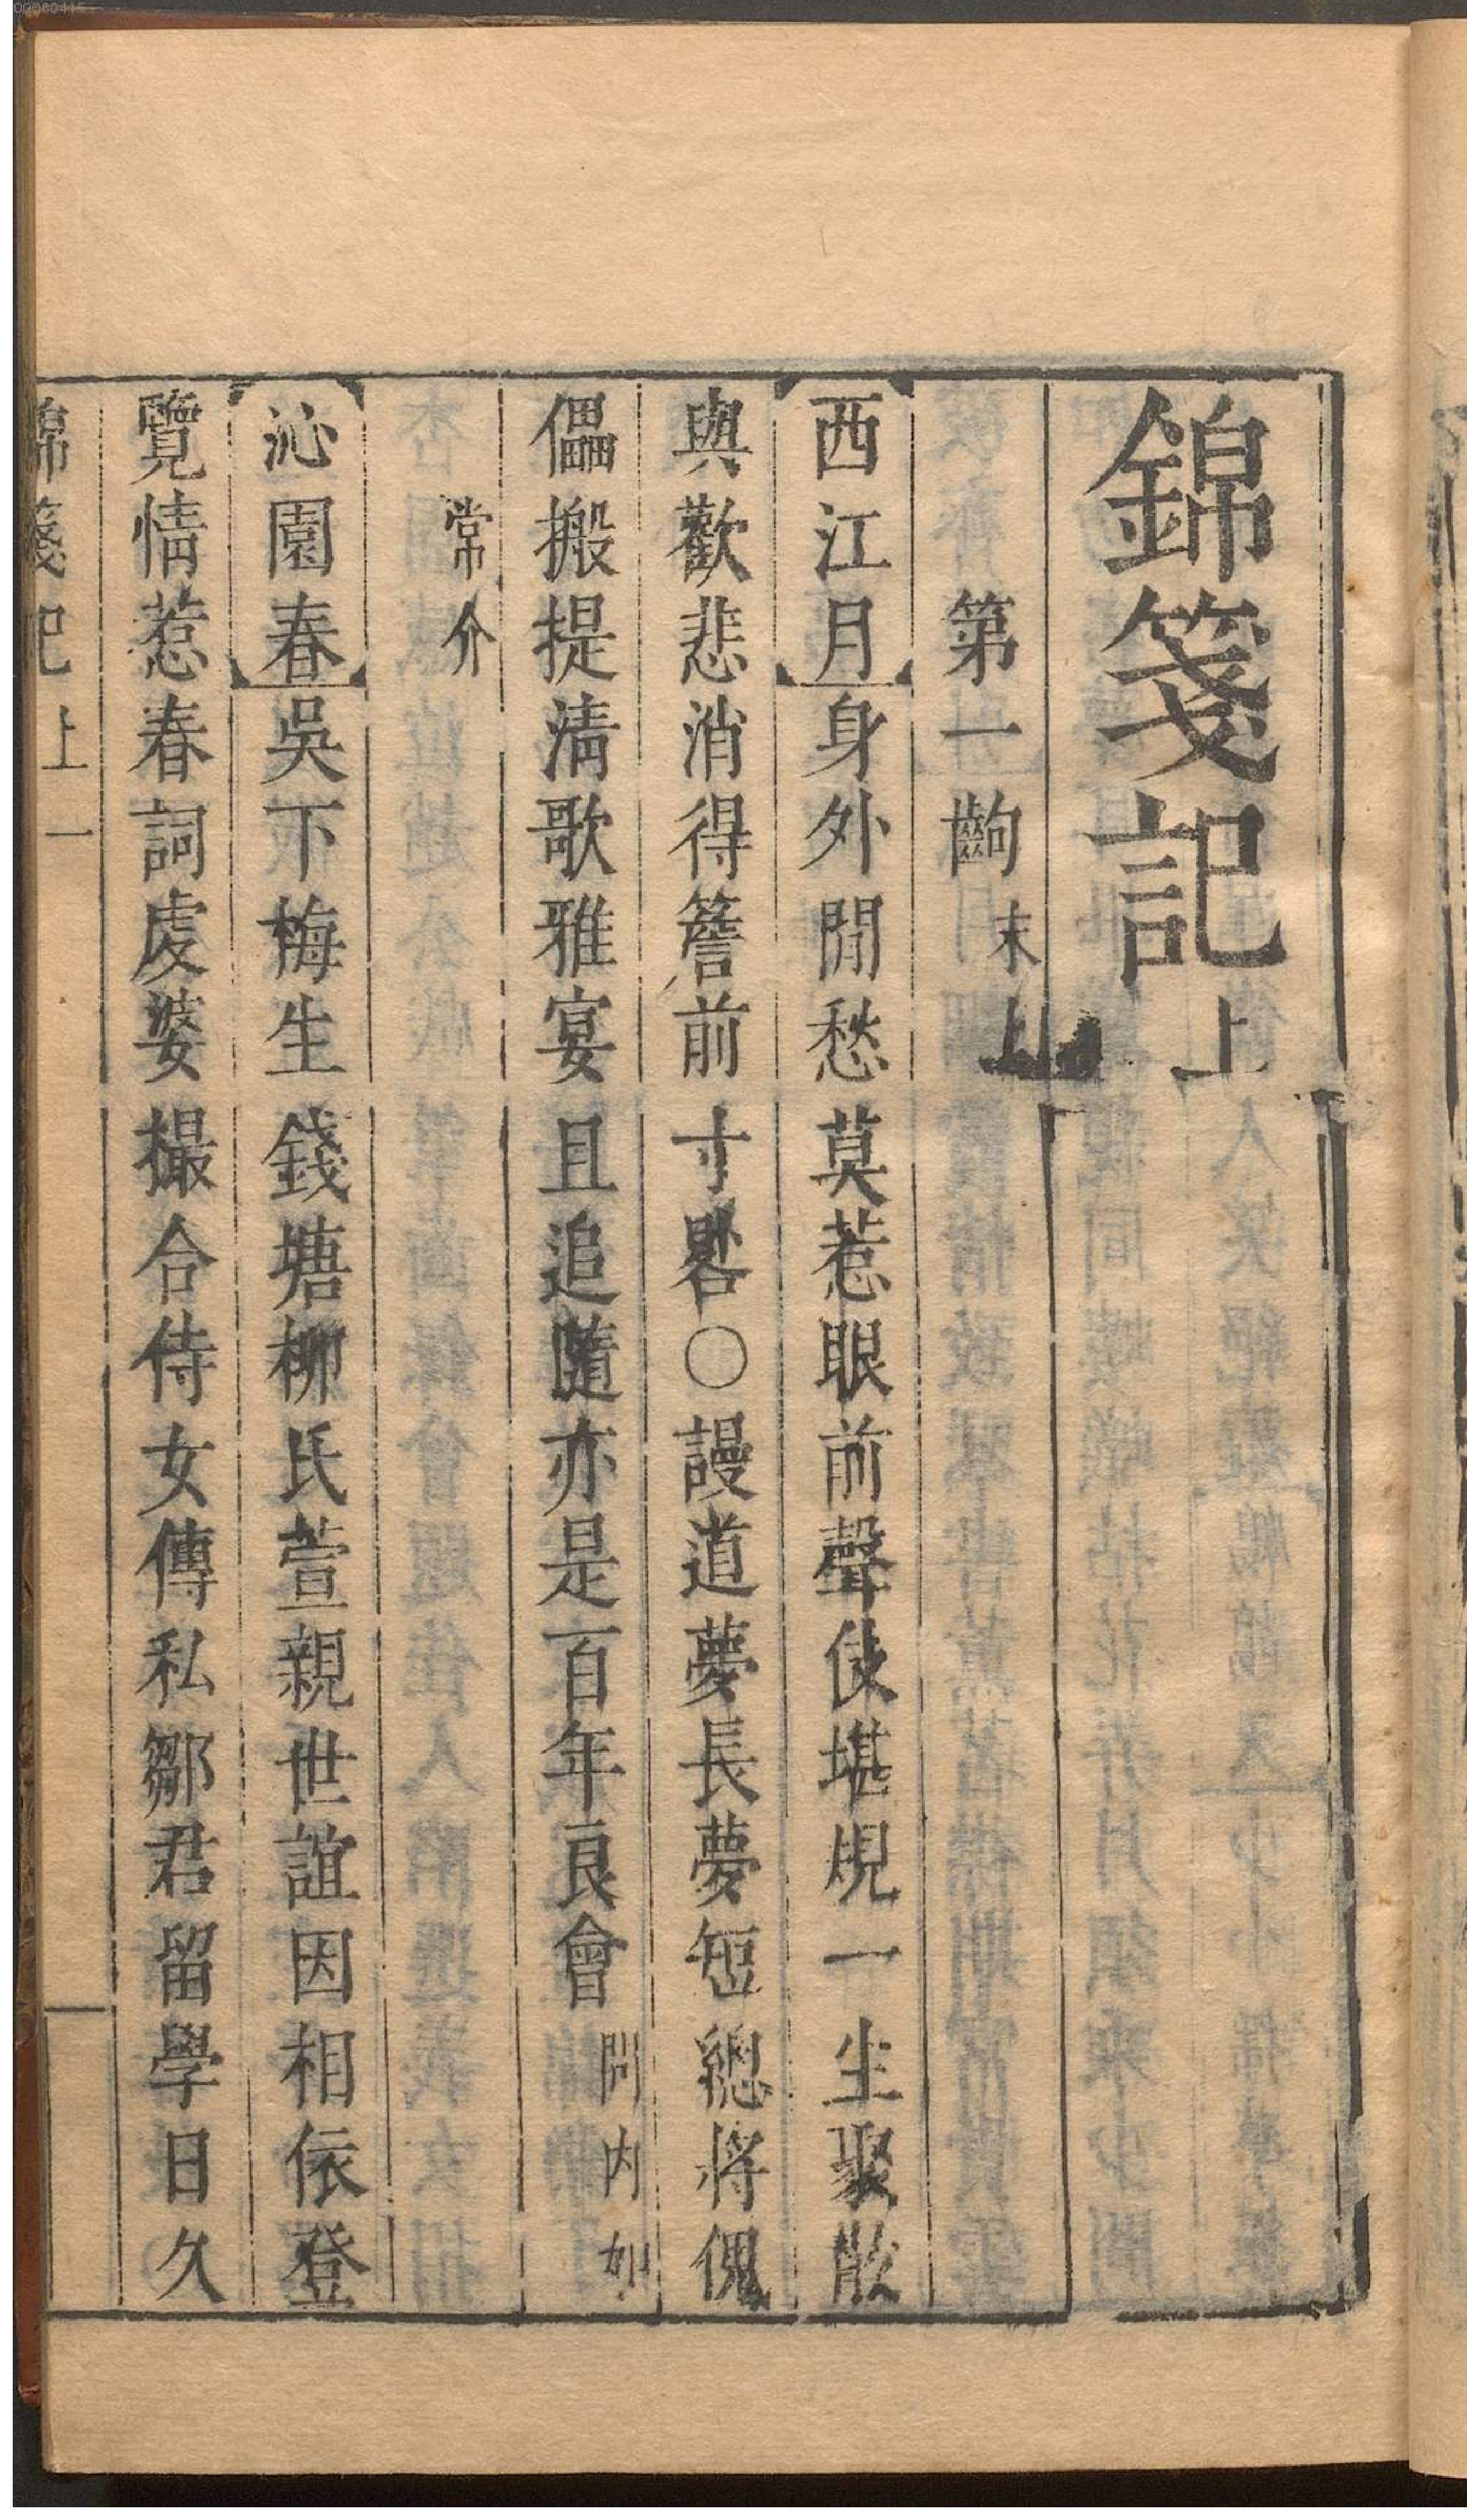 錦箋記上
第一齣 末上
【西江月】身外閒愁莫惹眼前聲伎堪䂓一生聚散
與歡悲消得簷前寸晷○謾道夢長夢短總將傀
儡搬提清歌雅宴且追隨亦是百年良會 問內如
常介
【沁園春】吳下梅生錢塘柳氏萱親世誼因相依登
覽情惹春詞處婆撮合侍女傳私鄒君留學日久
錦箋記 上 一
00060415